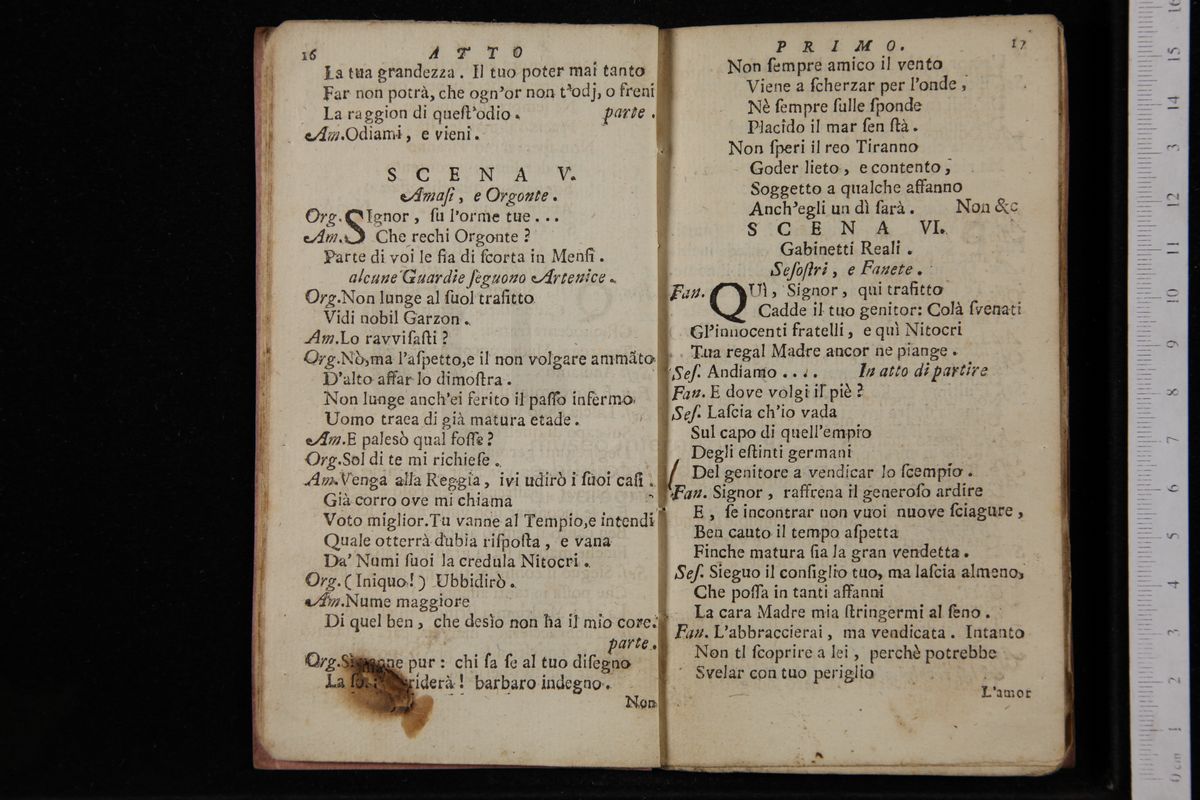 16 ATTO
La tua grandezza. Il tuo poter mai tanto
Far non potrà, che ogn'or non t'odj, o freni
La raggion di queſt'odio. parte.
Am. Odiami, e vieni.
SCENA V.
Amaſi, e Orgonte.
Org. SIgnor, ſu l'orme tue...
Am. Che rechi Orgonte?
Parte di voi le ſia di ſcorta in Menfi.
alcune Guardie ſeguono Artenice.
Org. Non lunge al ſuol trafitto
Vidi nobil Garzon.
Am. Lo ravviſaſti?
Org. Nò, ma l'aſpetto, e il non volgare ammãto
D'alto affar lo dimoſtra.
Non lunge anch'ei ferito il paſſo infermo
Uomo traea di già matura etade.
Am. E palesò qual foſſe?
Org. Sol di te mi richieſe.
Am. Venga alla Reggia, ivi udirò i ſuoi caſi.
Già corro ove mi chiama
Voto miglior. Tu vanne al Tempio, e intendi
Quale otterrà dubia riſpoſta, e vana
Da' Numi ſuoi la credula Nitocri.
Org. (Iniquo!) Ubbidirò.
Am. Nume maggiore
Di quel ben, che desìo non ha il mio core.
parte.
Org. pur: chi ſa ſe al tuo diſegno
La riderà! barbaro indegno.
Non
PRIMO. 17
Non ſempre amico il vento
Viene a ſcherzar per l'onde,
Nè ſempre ſulle ſponde
Placido il mar ſen ſtà.
Non ſperi il reo Tiranno
Goder lieto, e contento,
Soggetto a qualche affanno
Anch'egli un dì ſarà. Non &c
SCENA VI.
Gabinetti Reali.
Seſoſtri, e Fanete.
Fan. QUì, Signor, qui trafitto
Cadde il tuo genitor: Colà ſvenati
Gl'innocenti fratelli, e quì Nitocri
Tua regal Madre ancor ne piange.
Seſ. Andiamo.... In atto di partire
Fan. E dove volgi il piè?
Seſ. Laſcia ch'io vada
Sul capo di quell'empio
Degli eſtinti germani
Del genitore a vendicar lo ſcempio.
Fan. Signor, raffrena il generoſo ardire
E, ſe incontrar non vuoi nuove ſciagure,
Ben cauto il tempo aſpetta
Finche matura ſia la gran vendetta.
Seſ. Sieguo il conſiglio tuo, ma laſcia almeno,
Che poſſa in tanti affanni
La cara Madre mia ſtringermi al ſeno.
Fan. L'abbraccierai, ma vendicata. Intanto
Non ti ſcoprire a lei, perchè potrebbe
Svelar con tuo periglio
L'amor
0 cm 1 2 3 4 5 6 7 8 9 10 11 12 13 14 15 16